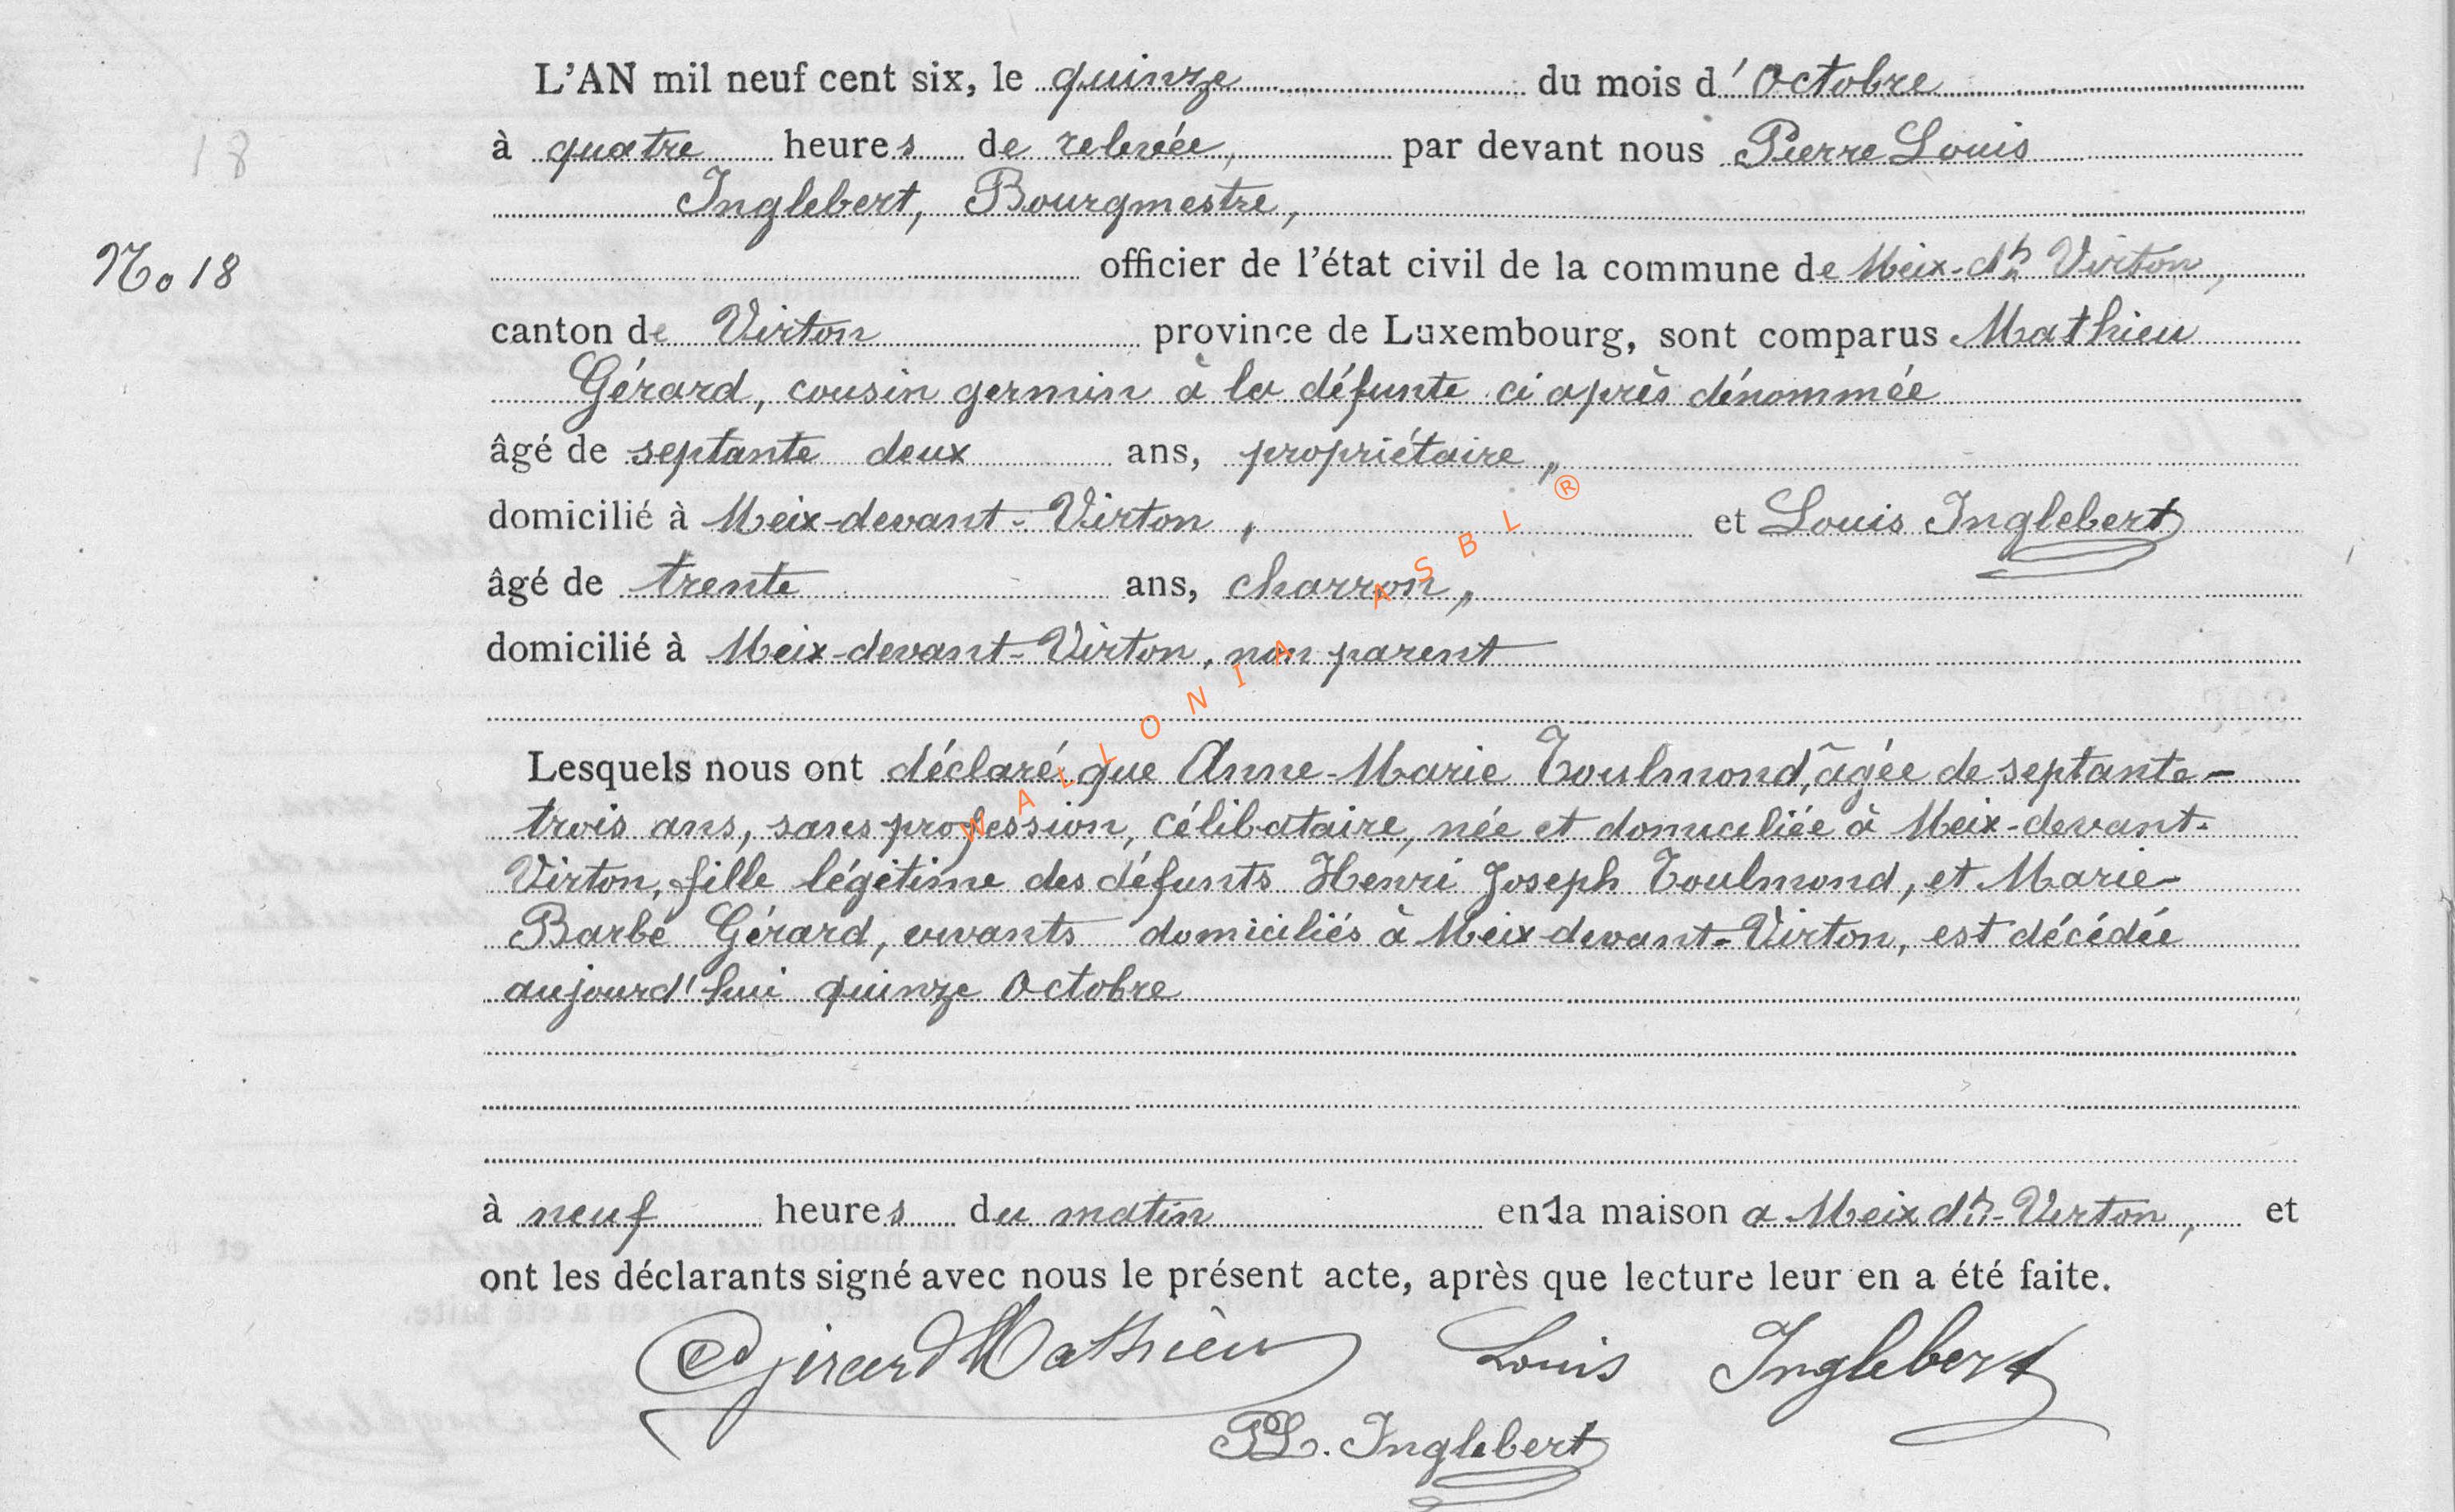 L'AN mil neuf cent six, le quinze du mois d'Octobre
à quatre heures de relevée, par devant nous Pierre Louis
Inglebert, Bourgmestre,
No 18 officier de l'état civil de la commune de Meix-dt Virton,
canton de Virton province de Luxembourg, sont comparus Mathieu
Gérard, cousin germin à la défunte ci après dénommée
âgé de septante deux ans, propriétaire,
domicilié à Meix-devant-Virton, et Louis Inglebert
âgé de trente ans, charron,
domicilié à Meix-devant-Virton, non parent
Lesquels nous ont déclaré que Anne-Marie Toulmond, âgée de septante-
trois ans, sans profession, célibataire, née et domiciliée à Meix-devant-
Virton, fille légitime des défunts Henri Joseph Toulmond, et Marie-
Barbe Gérard, vivants domiciliés à Meix devant-Virton, est décédée
aujourd'hui quinze Octobre
à neuf heures du matin en la maison a Meix dt-Virton, et
ont les déclarants signé avec nous le présent acte, après que lecture leur en a été faite.
Gérard Mathieu Louis Inglebert
PL. Inglebert
18
WALLONIA ASBL ®